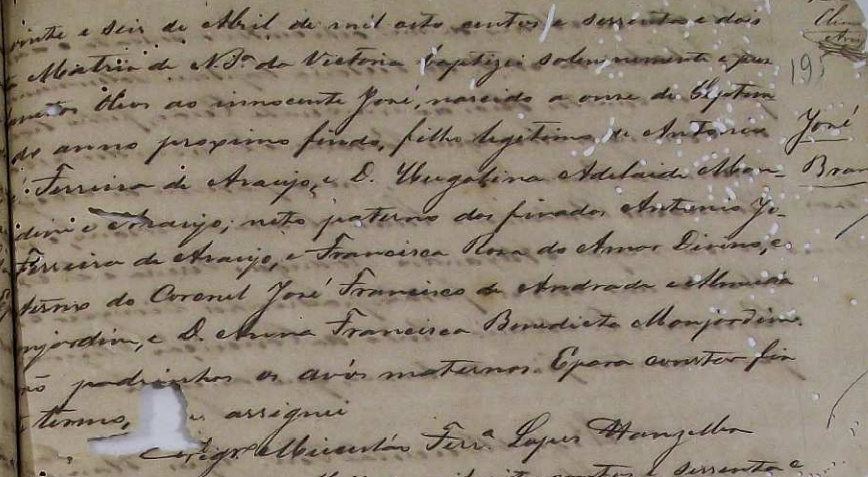 vinte e seis de Abril de mil oito centos e sessenta e dois
Matriz de N. Sª da Victoria baptizei solemnemente e puz
Oleos ao innocente José, nascido a onze de Septem
de anno proximo findo, filho legitimo de Antonio
Ferreira de Araujo, e D. Adelaide Mon-
dim e Araujo; neto paterno dos finados Antonio Jo-
Ferreira de Araujo, e Francisca Rosa do Amor Divino, e
terno do Coronel José Francisco de Andrade e Almeida
njardim, e D. Anna Francisca Benedicta Monjardim.
padrinhos os avós maternos. E para constar fiz
termo, assignei
Ferrª Lopes
centos e sessenta e
195
José
Bran